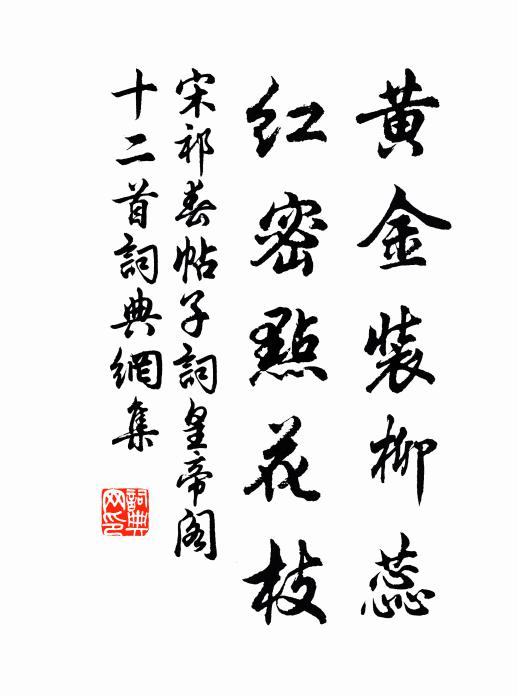 黄金裝柳蕊
紅密點花枝
宋祁春帖子詞皇帝閣
十二首詞典網集
詞典网印